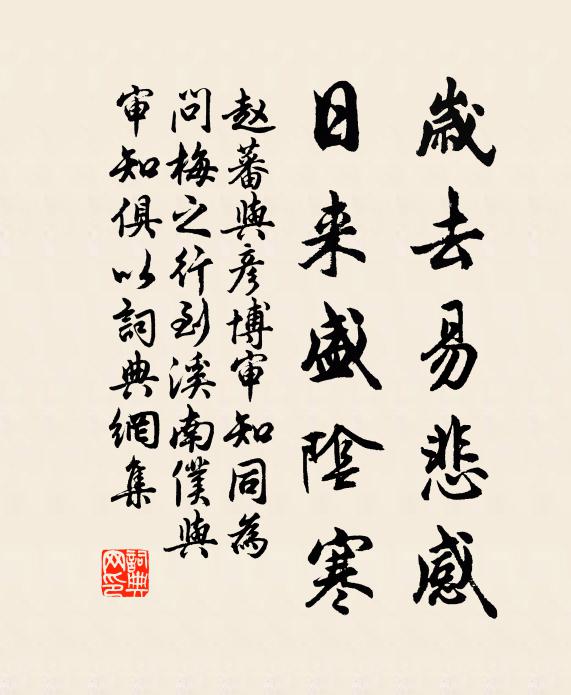 歲去易悲感
日来盛陰寒
赵蕃與彦博审知同為
問梅之行到溪南僕與
审知俱以詞典網集
詞典
网印